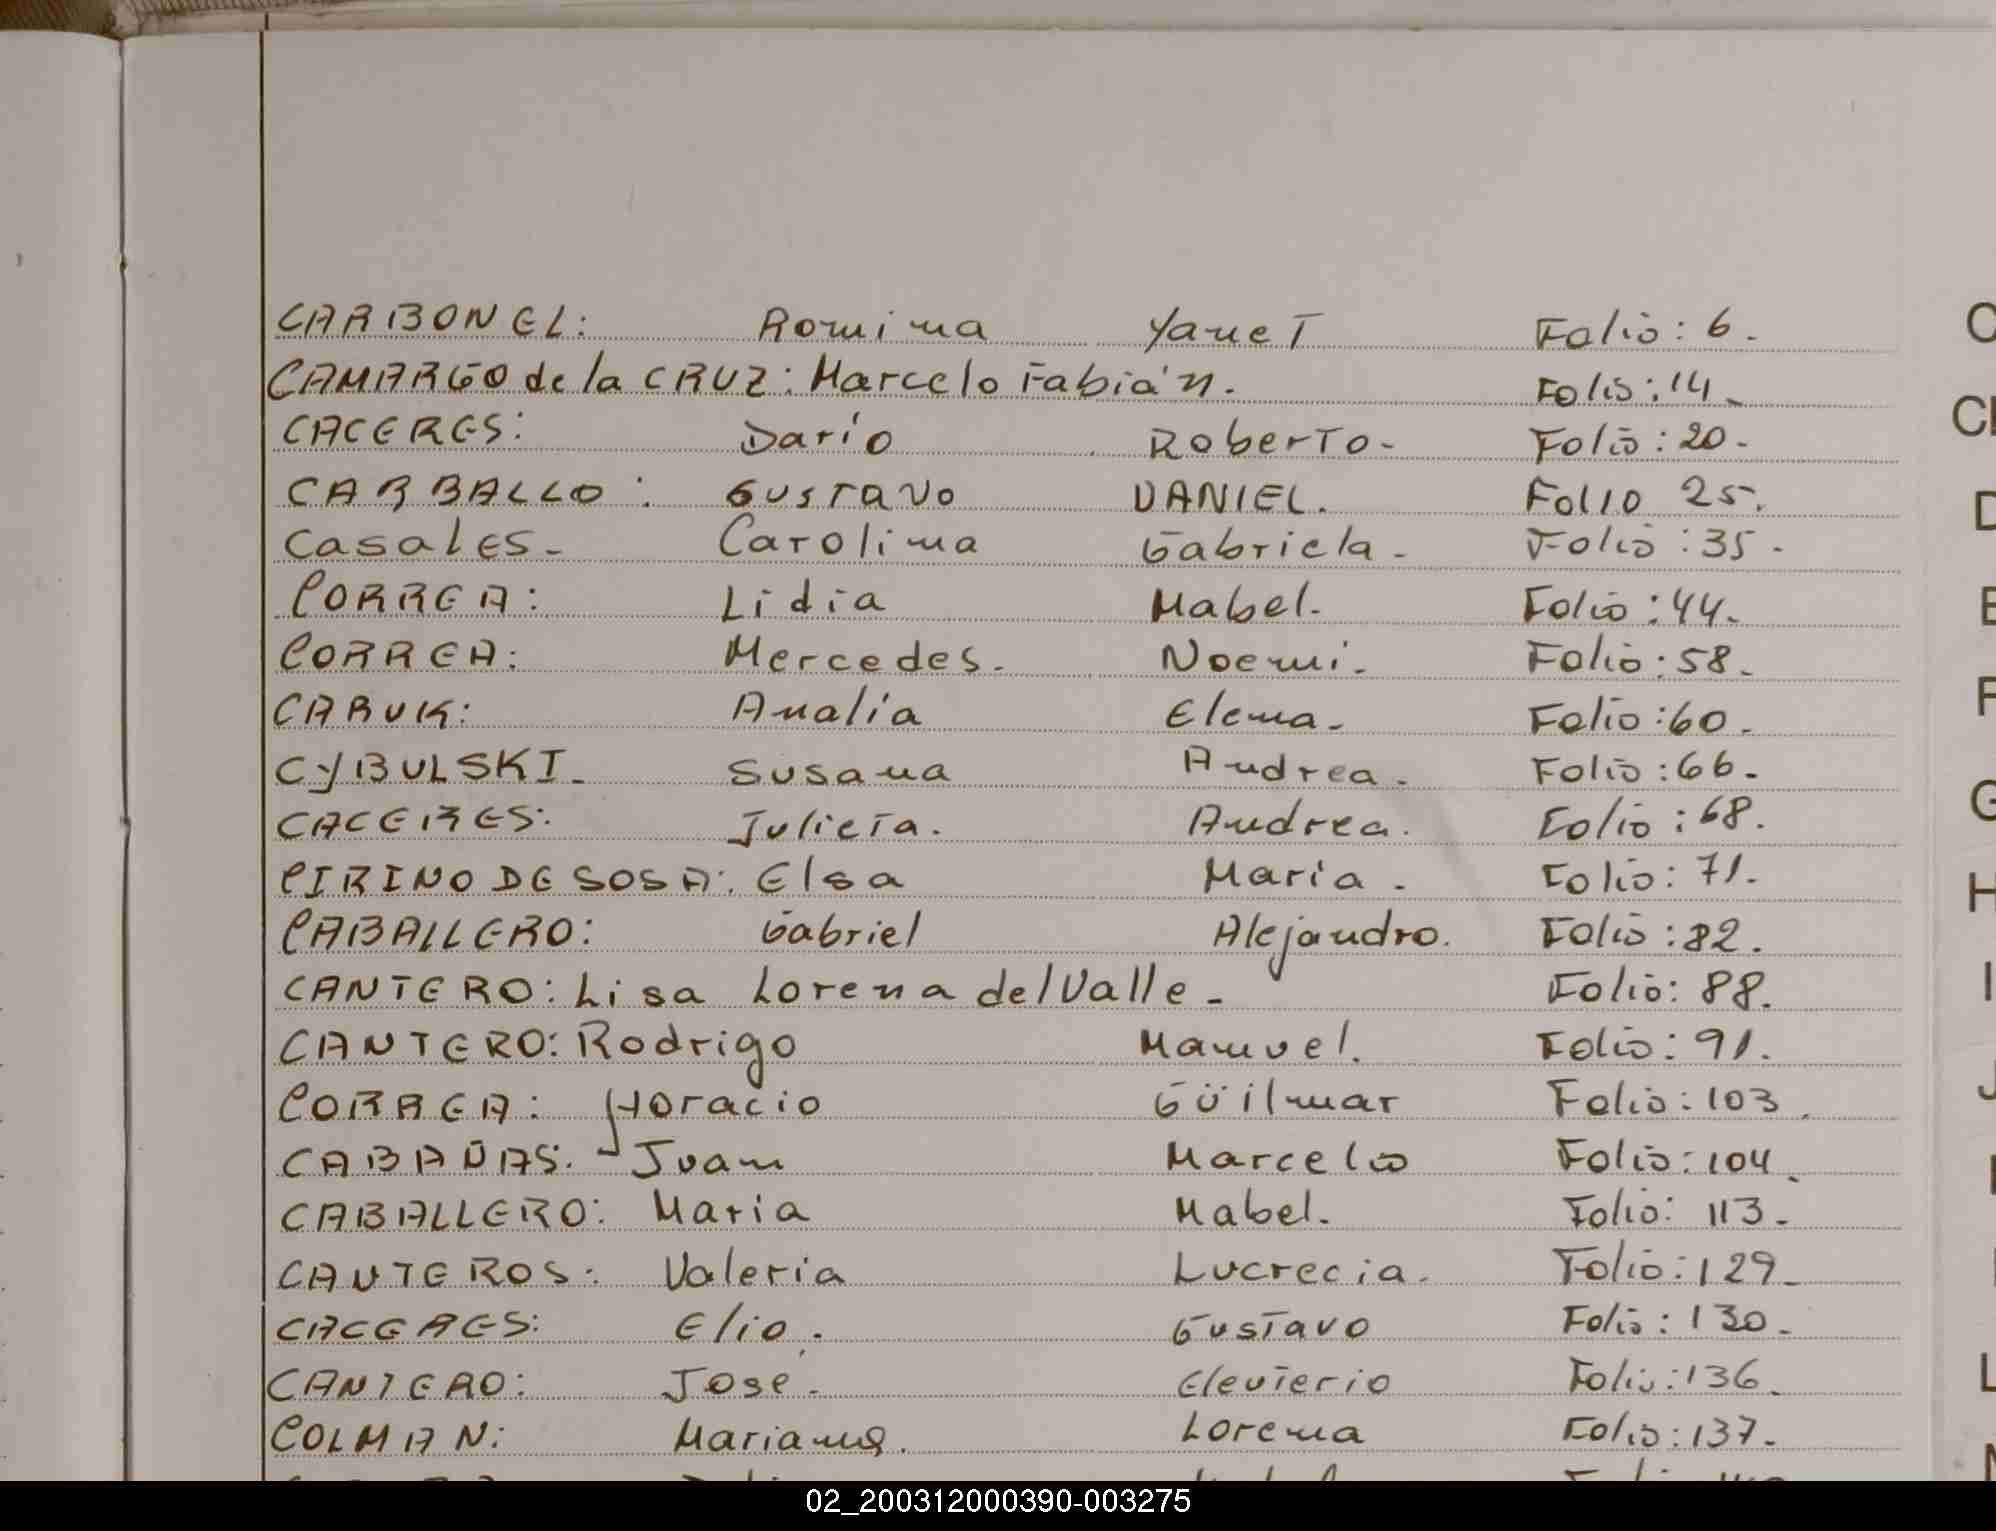 CARBONEL: Romina Yanet Folio: 6.
CAMARGO de la CRUZ: Marcelo Fabián. Folio: 14.
CACERES: Darío Roberto- Folio: 20-
CARBALLO: GUSTAVO DANIEL. FOLIO 25.
Casales- Carolina Gabriela- Folio: 35-
CORREA: Lidia Mabel. Folio: 44-
CORREA: Mercedes. Noemi. Folio: 58-
CABUK: Analía Elena- Folio: 60-
CYBULSKI- Susana Andrea- Folio: 66-
CACERES: Julieta. Andrea. Folio: 68.
CIRINO DE SOSA: Elsa María. Folio: 71.
CABALLERO: Gabriel Alejandro. Folio: 82.
CANTERO: Lisa Lorena del Valle- Folio: 88.
CANTERO: Rodrigo Manuel. Folio: 91.
CORREA: Horacio Güilmar Folio: 103.
CABAÑAS: Juan Marcelo Folio: 104.
CABALLERO: María Mabel. Folio: 113-
CANTEROS: Valeria Lucrecia. Folio: 129-
CACERES: Elio. Gustavo Folio: 130-
CANTERO: José. Eleuterio Folio: 136.
COLMAN: Mariana. Lorena Folio: 137-
C
CI
D
E
F
G
H
I
J
L
02_200312000390-003275